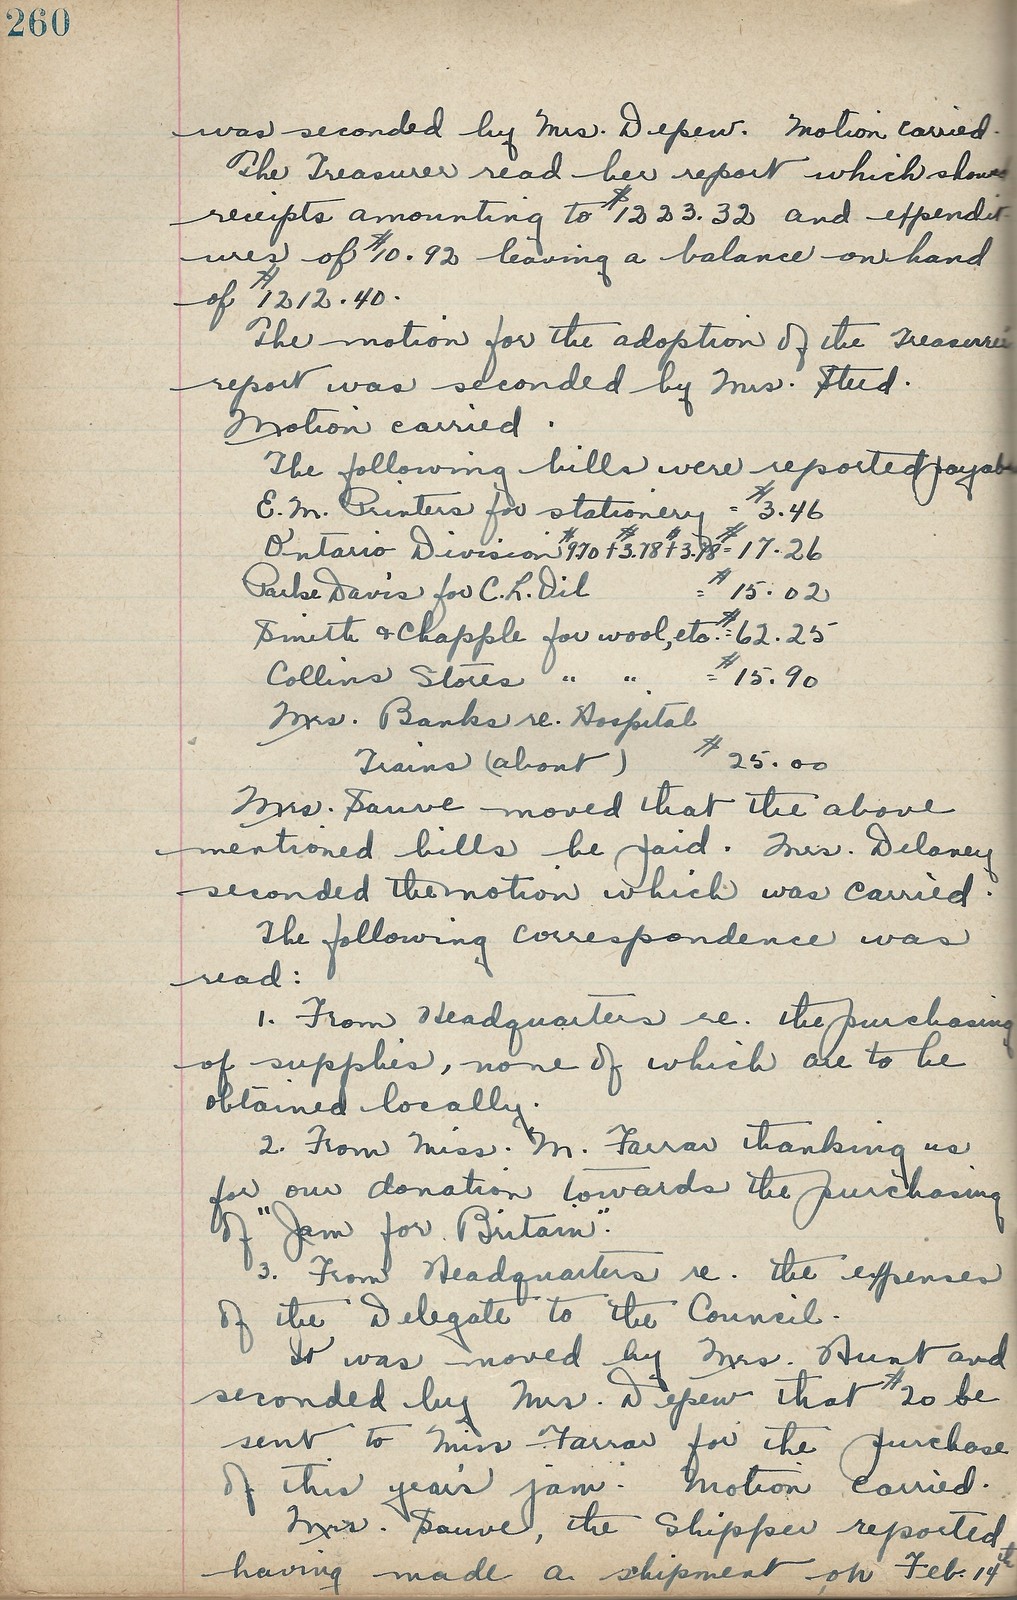 260
was seconded by Mrs. Depew. Motion carried.
The Treasurer read her report which shows
receipts amounting to $1223.32 and expendit-
ures of $10.92 leaving a balance on hand
of $1212.40.
The motion for the adoption of the Treasurer
report was seconded by Mrs. Steed.
Motion carried.
The following bills were reported payab
E.M. Printers for stationery = $3.46
Ontario Division $9.70 + $3.78 + $3.78 = $17.26
Parke Davis for C.L. Oil = $15.02
Smith & Chapple for wool, etc. = $62.25
Collins Stores " " = $15.90
Mrs. Banks re. Hospital
Trains (about) $25.00
Mrs. Sauve moved that the above
mentioned bills be paid. Mrs. Delaney
seconded the motion which was carried.
The following correspondence was
read:
1. From Headquarters re. the purchasing
of supplies, none of which are to be
obtained locally.
2. From Miss. M. Farrar thanking us
for our donation towards the purchasing
of "Jam for Britain".
3. From Headquarters re. the expenses
of the Delegate to the Council.
It was moved by Mrs. Hunt and
seconded by Mrs. Depew that $20 be
sent to Miss Farrar for the purchase
of this year's jam. Motion carried.
Mrs. Sauve, the Shipper reported
having made a shipment on Feb. 14th